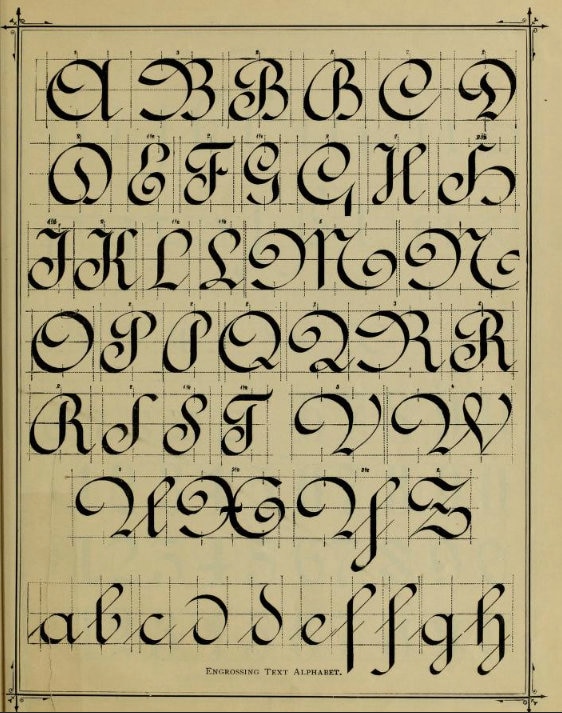 A B B B C D
D E F G G H H
I K L L M N
O P P Q Q R R
R S S T V W
U X Y Z
a b c d d e f f g h
Engrossing Text Alphabet.